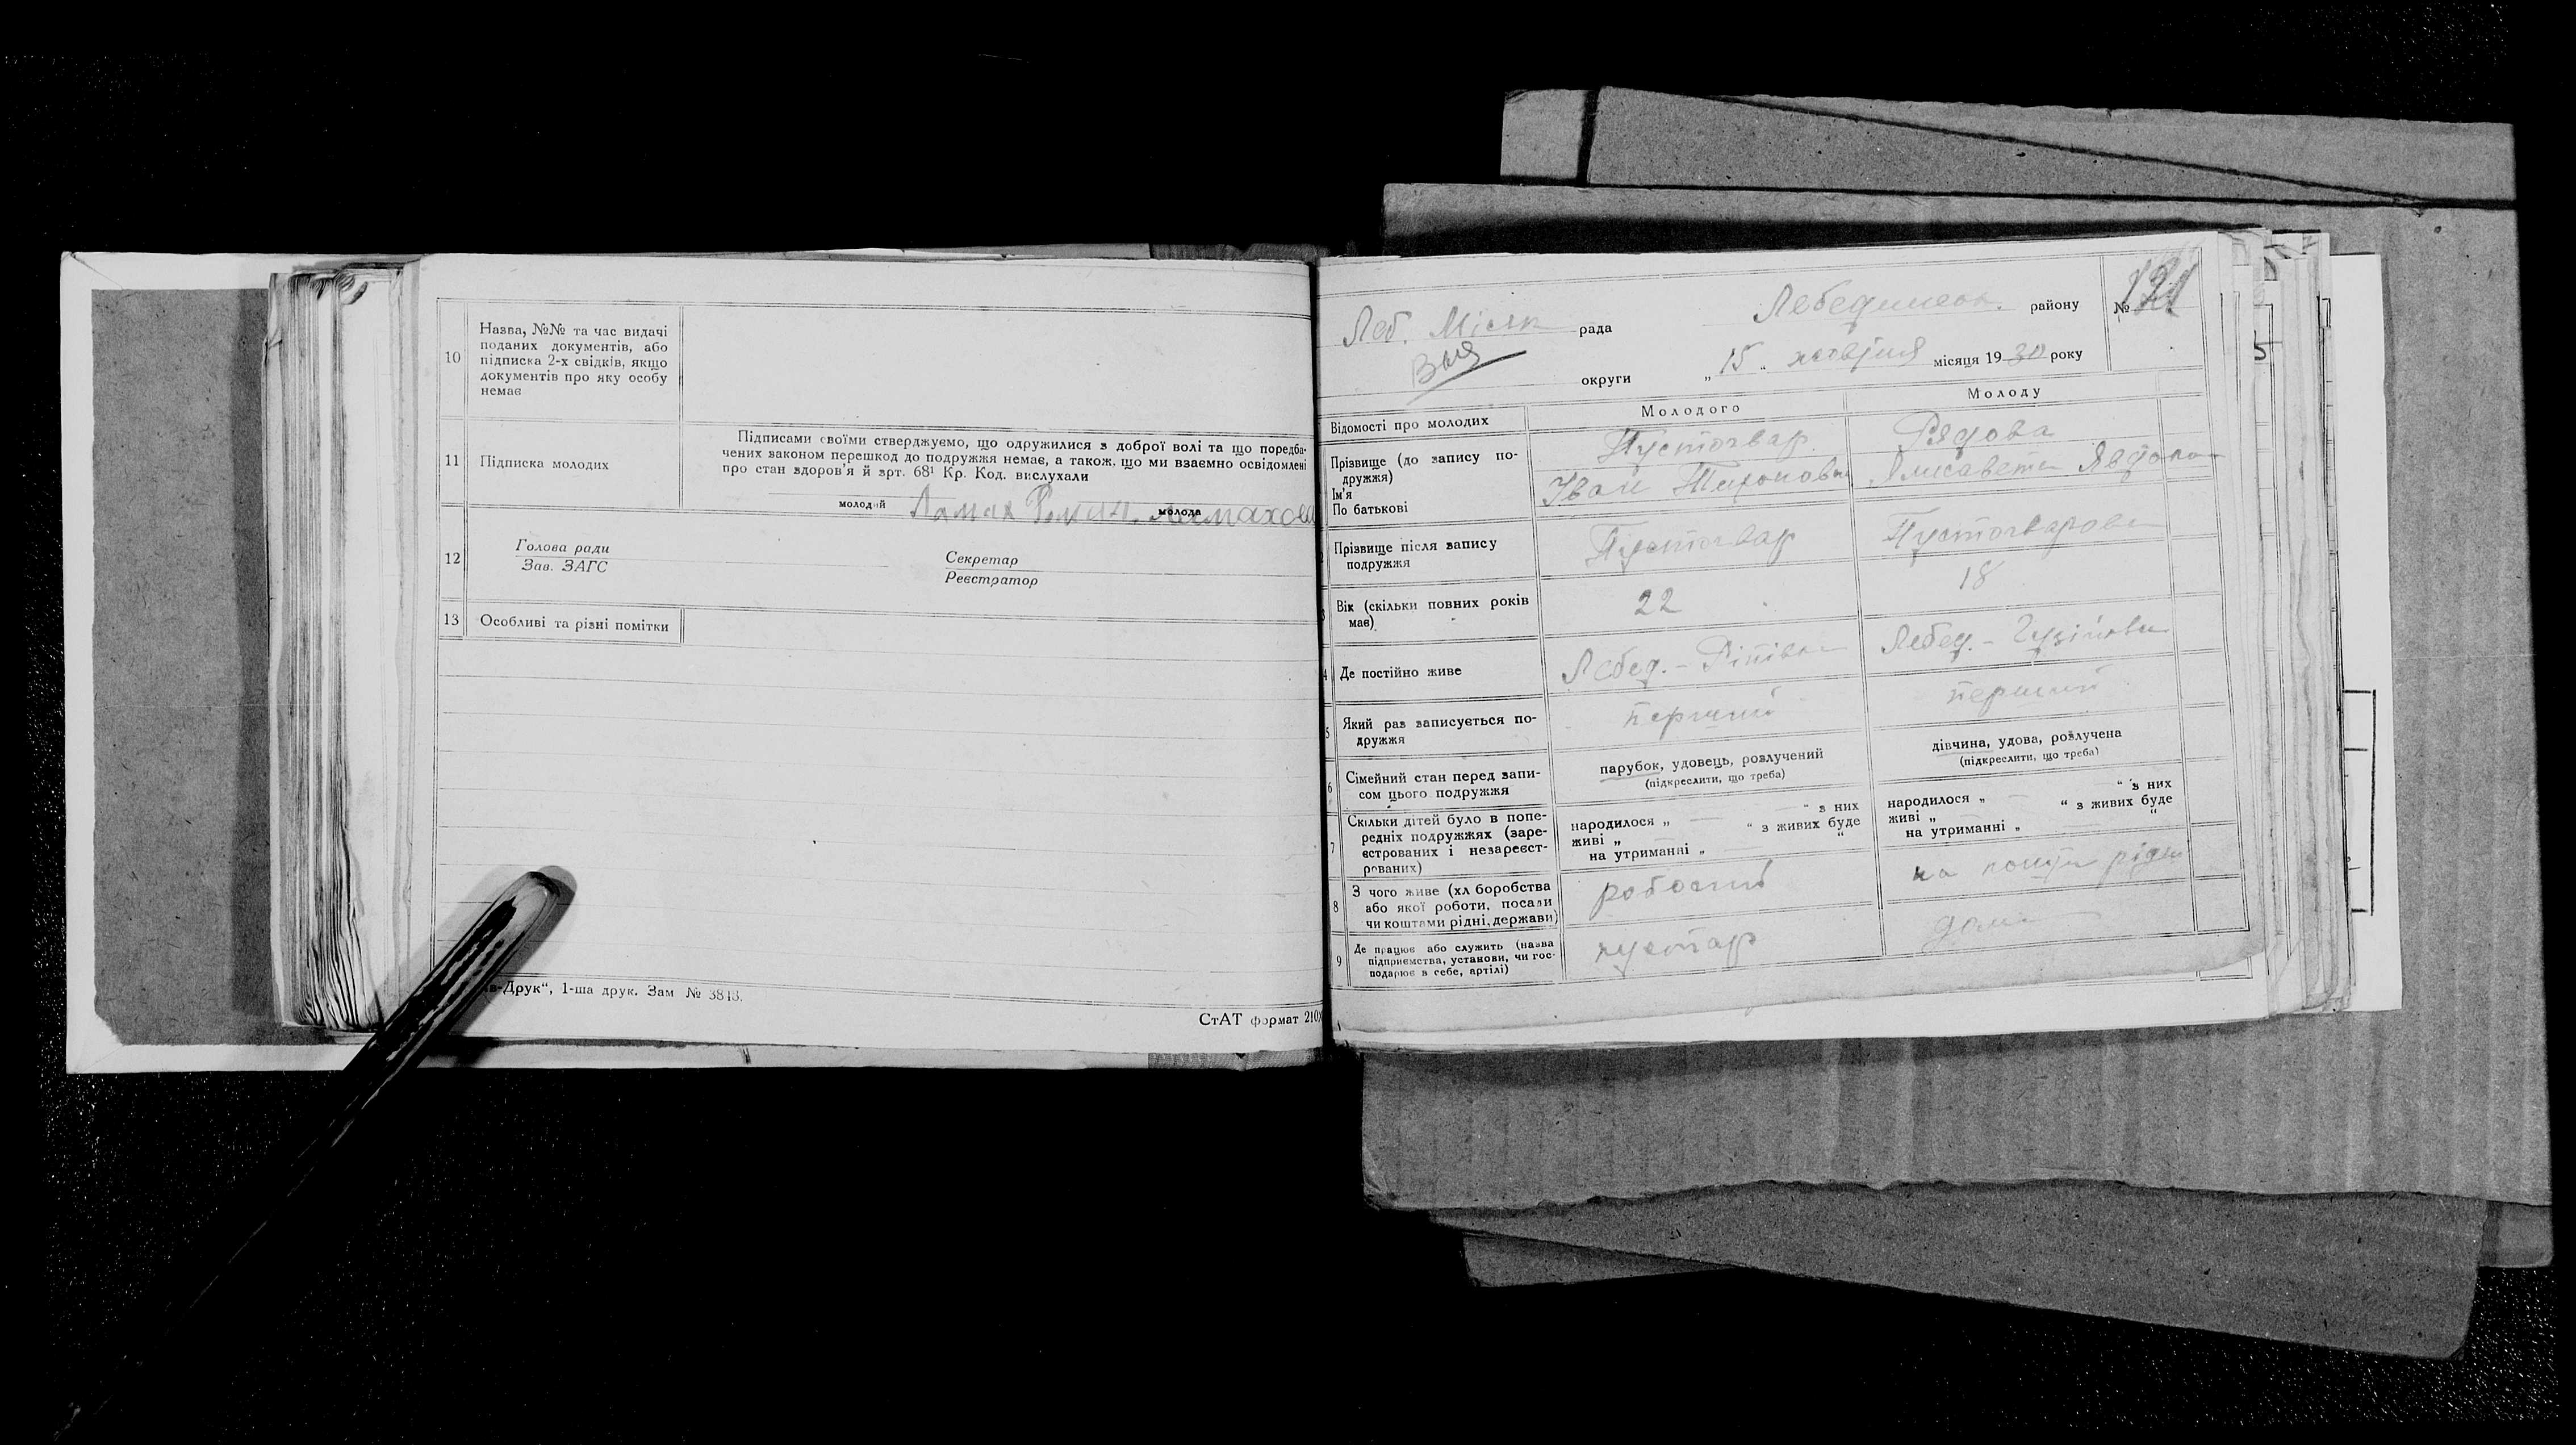 10
Назва, №№ та час видачі
поданих документів, або
підписка 2-х свідків, якщо
документів про яку особу
немає
11
Підписка молодих
Підписами своїми стверджуємо, що одружилися з доброї волі та що поредба-
чених законом перешкод до подружжя немає, а також, що ми взаємно освідомлені
про стан здоров'я й зрт. 68¹ Кр. Код. вислухали
молодий Ламах Роман. молода Ламахова
12
Голова ради
Зав. ЗАГС
Секретар
Реєстратор
13
Особливі та різні помітки
в-Друк“, 1-ша друк. Зам № 3813.
СтАТ формат 210
Леб. Міськ рада
Лебединськ. району
№ 121
округи
„ 15 „ жовтня місяця 1930 року
Відомості про молодих
Молодого
Молоду
Прізвище (до запису по-
дружжя)
Ім'я
По батькові
Пустовар
Іван Тихонович
Рядова
Прізвище після запису
подружжя
Пустовар
Пустоварова
Вік (скільки повних років
має)
22
18
4
Де постійно живе
Лебед. -
Лебед. -
5
Який раз записується по-
дружжя
перший
перший
6
Сімейний стан перед запи-
сом цього подружжя
парубок, удовець, розлучений
(підкреслити, що треба)
дівчина, удова, розлучена
(підкреслити, що треба)
7
Скільки дітей було в попе-
редніх подружжях (заре-
єстрованих і незареєст-
рованих)
народилося „ — “ з них
живі „ — “ з живих буде
на утриманні „ — “
народилося „ — “ з них
живі „ — “ з живих буде
на утриманні „ “
8
З чого живе (хл боробства
або якої роботи, посади
чи коштами рідні, держави)
9
Де працює або служить (назва
підприємства, установи, чи гос-
подарює в себе, артілі)
дома